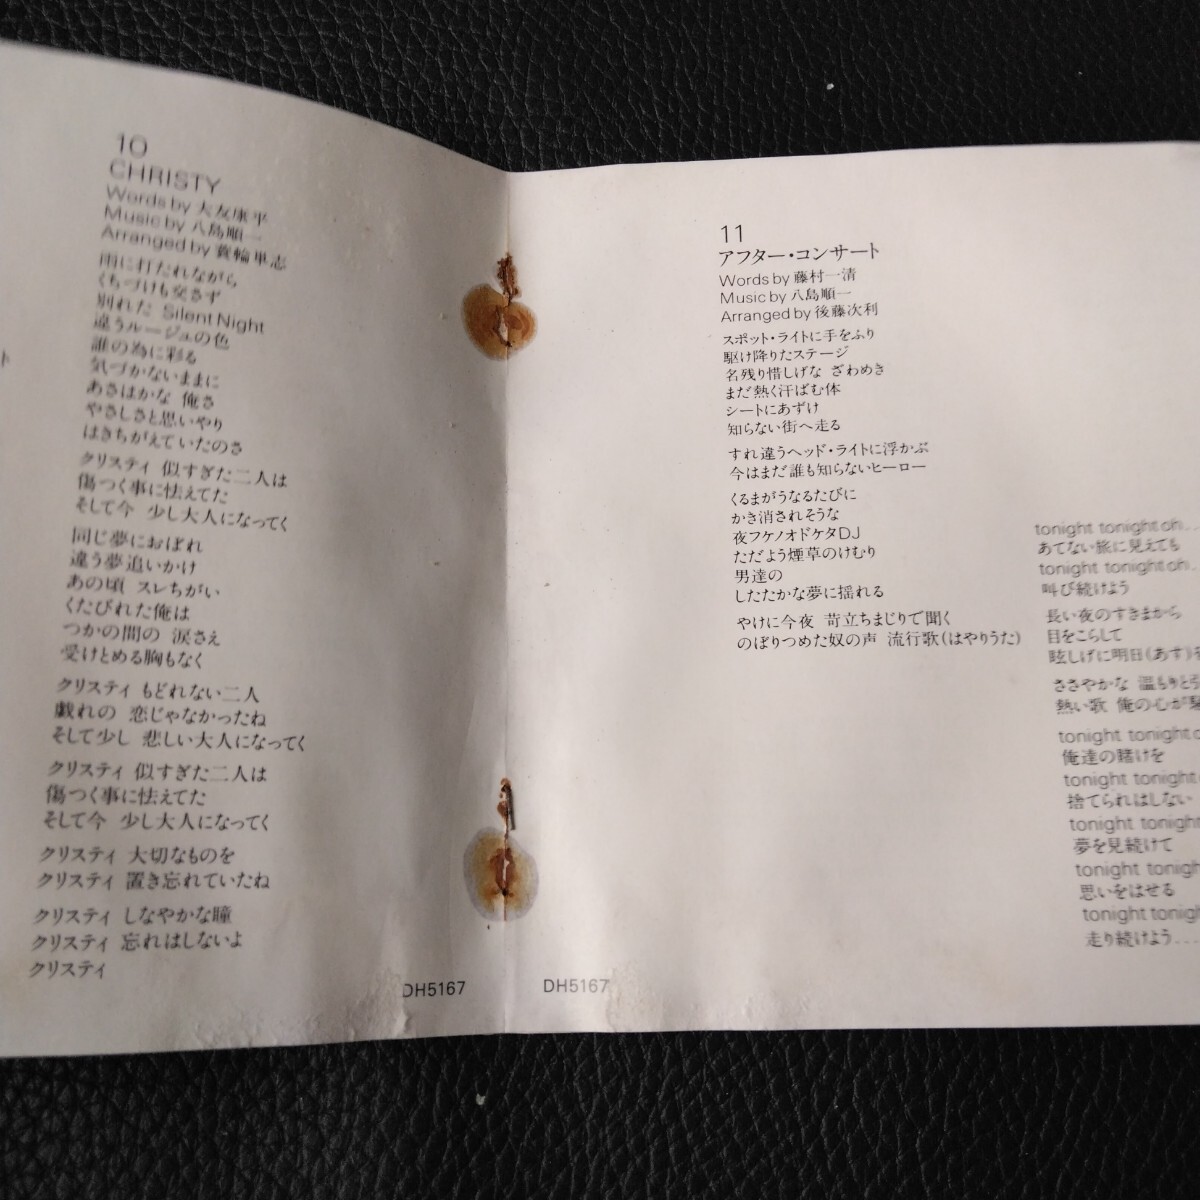 10
CHRISTY
Words by 大友康平
Music by 八島順一
Arranged by 簑輪単志
雨に打たれながら
くちづけも交さず
別れた Silent Night
違うルージュの色
誰の為に彩る
気づかないままに
あさはかな 俺さ
やさしさと思いやり
はきちがえていたのさ
クリスティ 似すぎた二人は
傷つく事に怯えてた
そして今 少し大人になってく
同じ夢におぼれ
違う夢追いかけ
あの頃 スレちがい
くたびれた俺は
つかの間の 涙さえ
受けとめる胸もなく
クリスティ もどれない二人
戯れの 恋じゃなかったね
そして少し 悲しい大人になってく
クリスティ 似すぎた二人は
傷つく事に怯えてた
そして今 少し大人になってく
クリスティ 大切なものを
クリスティ 置き忘れていたね
クリスティ しなやかな瞳
クリスティ 忘れはしないよ
クリスティ
DH5167
ト
11
アフター・コンサート
Words by 藤村一清
Music by 八島順一
Arranged by 後藤次利
スポット・ライトに手をふり
駆け降りたステージ
名残り惜しげな ざわめき
まだ熱く汗ばむ体
シートにあずけ
知らない街へ走る
すれ違うヘッド・ライトに浮かぶ
今はまだ誰も知らないヒーロー
くるまがうなるたびに
かき消されそうな
夜フケノオドケタDJ
ただよう煙草のけむり
男達の
したたかな夢に揺れる
やけに今夜 苛立ちまじりで聞く
のぼりつめた奴の声 流行歌(はやりうた)
tonight tonight oh...
あてない旅に見えても
tonight tonight oh..
叫び続けよう
長い夜のすきまから
目をこらして
眩しげに明日(あす)
ささやかな 温もりと
熱い歌 俺の心が
tonight tonight
俺達の賭けを
tonight tonight
捨てられはしない
tonight tonight
夢を見続けて
tonight tonigh
思いをはせる
tonight tonigh
走り続けよう...
DH5167